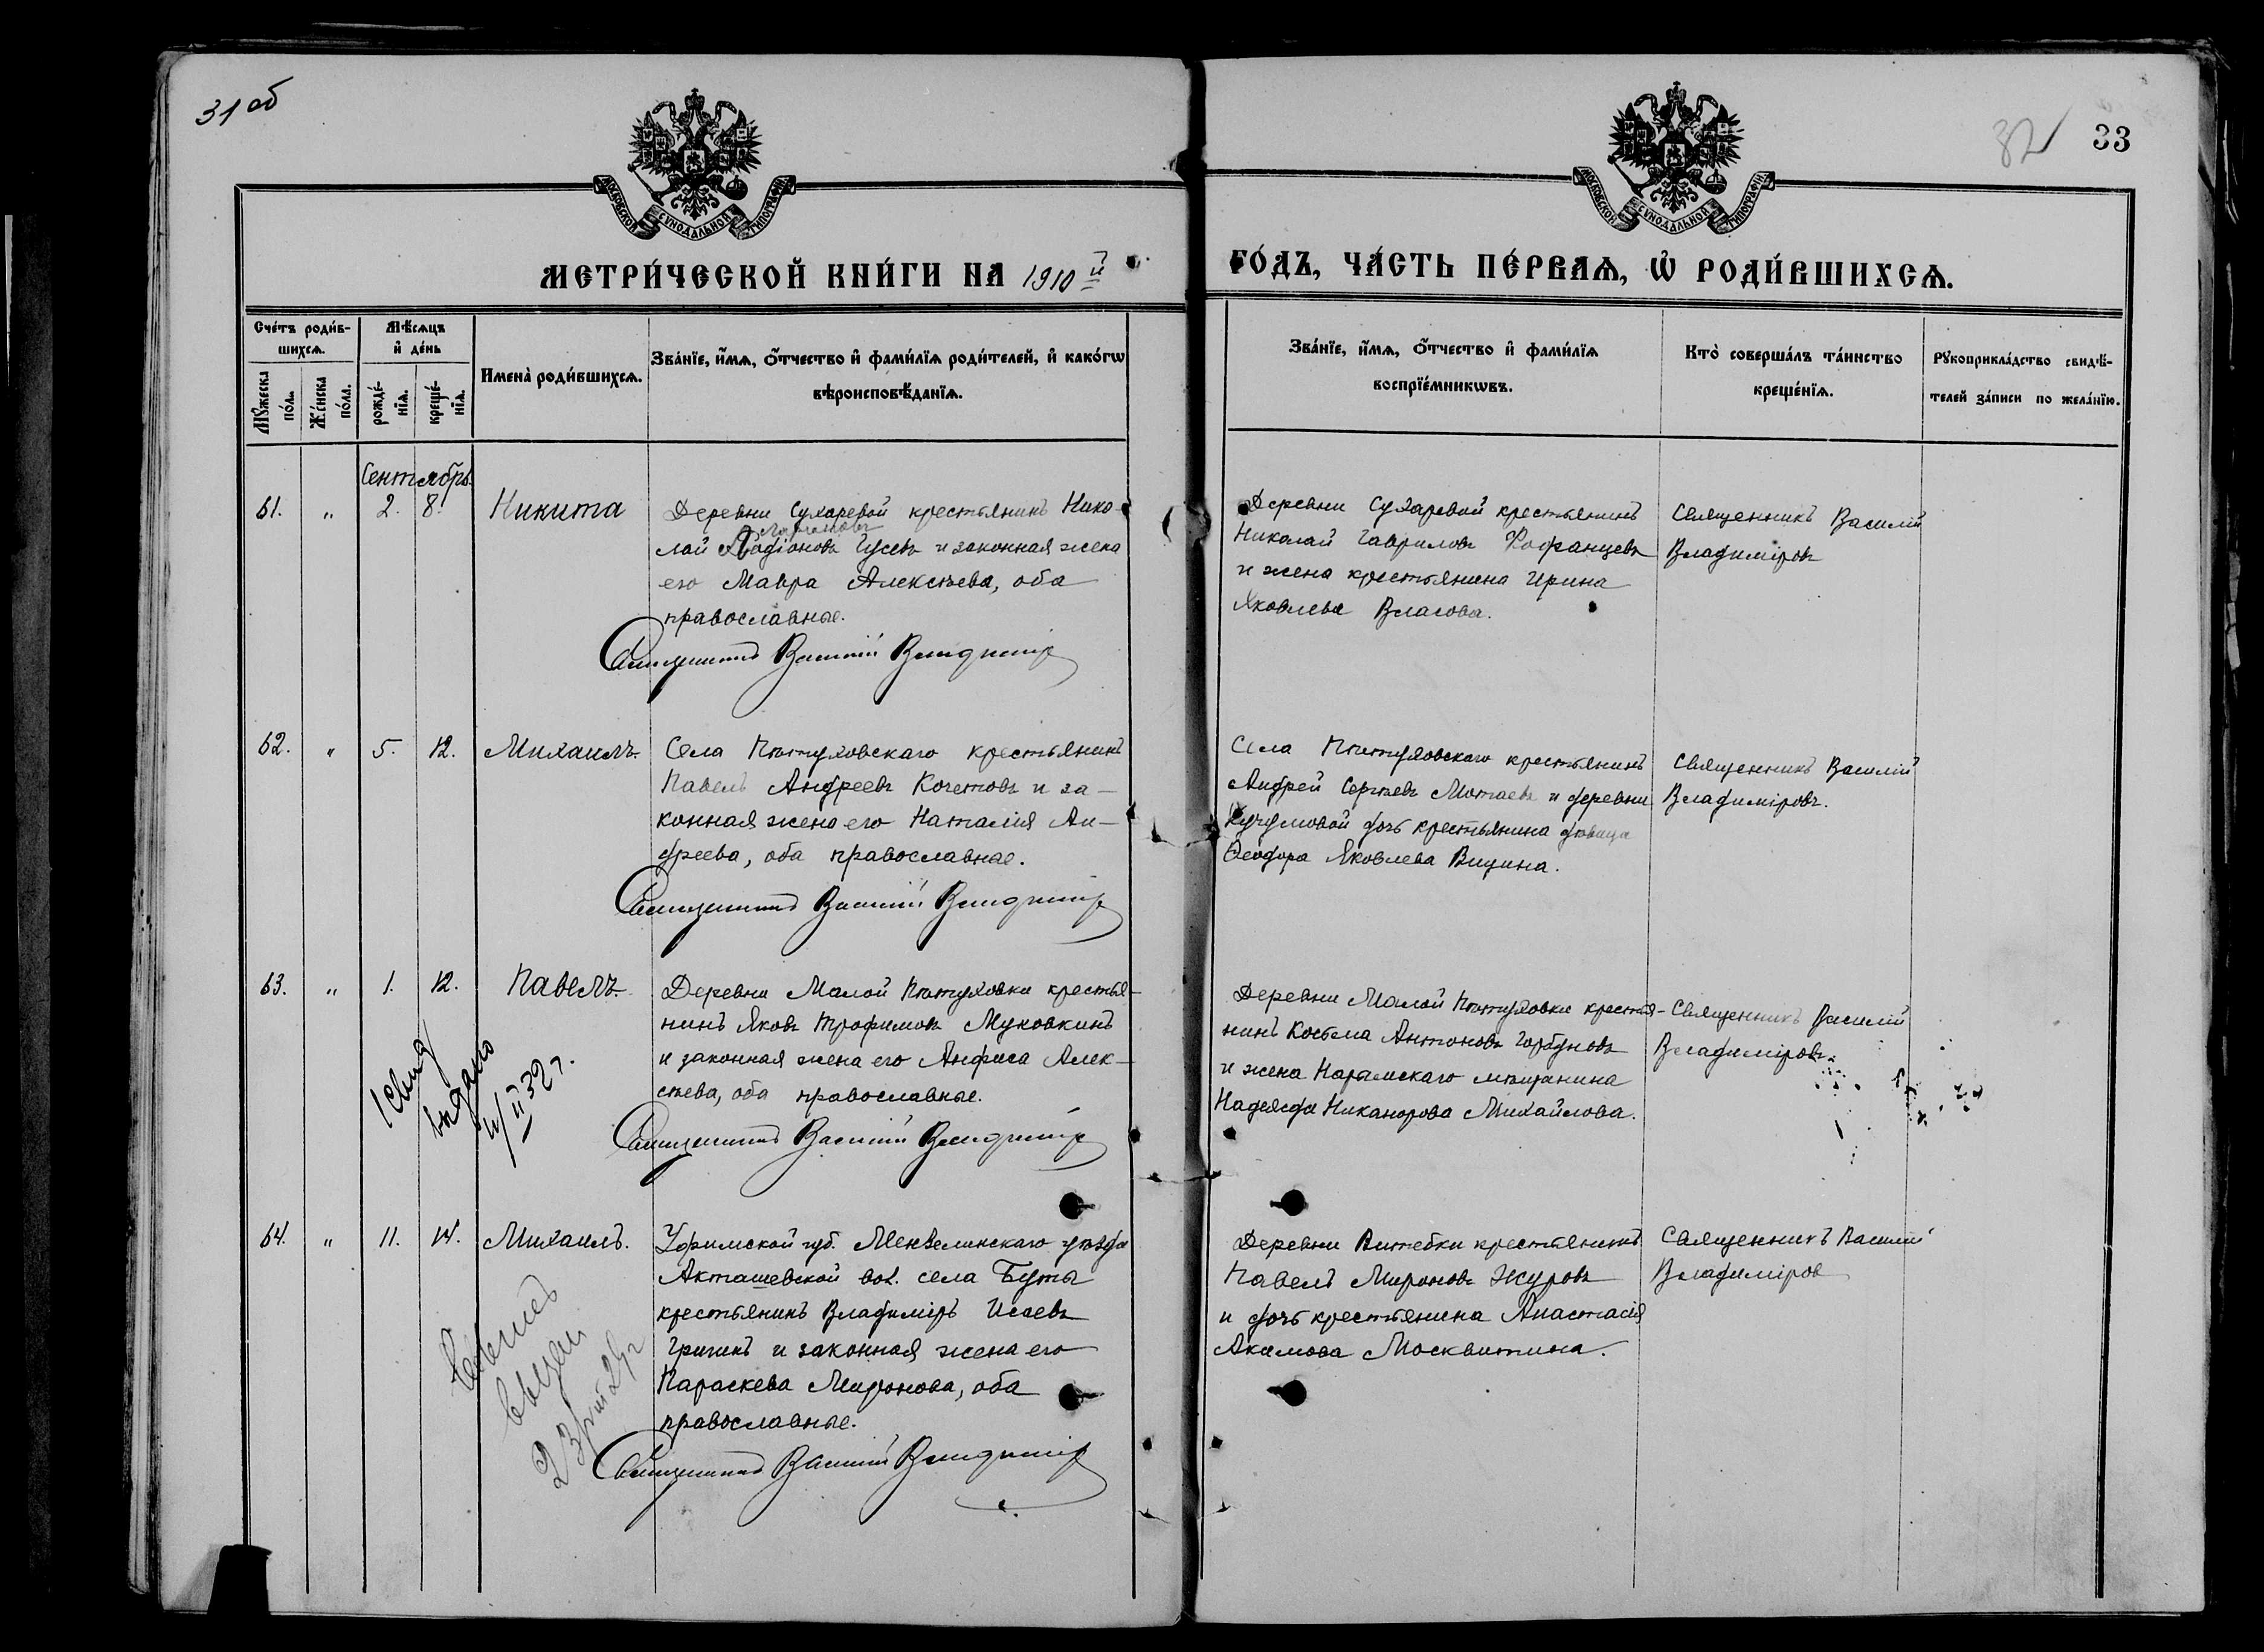 31 об
32
33
МОСКОВСКОЙ СѴНОДАЛЬНОЙ ТИПОГРАФІИ
МОСКОВСКОЙ СѴНОДАЛЬНОЙ ТИПОГРАФІИ
МЕТРИ́ЧЕСКОЙ КНИ́ГИ НА 1910й
ГО́ДЪ, ЧА́СТЬ ПЕ́РВАѦ, Ѡ҆ РОДИ́ВШИХСѦ.
Сче́тъ роди́в-
шихсѧ.
Мꙋ́жеска
по́ла.
Же́нска
по́ла.
Мѣ́сѧцъ
и҆ де́нь
рожде́-
нїѧ.
креще́-
нїѧ.
Имена̀ роди́вшихсѧ.
Зва́нїе, и҆́мѧ, ѻ҆́тчество и҆ фами́лїѧ роди́телей, и҆ како́гѡ
вѣроисповѣ́данїѧ.
Зва́нїе, и҆́мѧ, ѻ҆́тчество и҆ фами́лїѧ
воспрїе́мникѡвъ.
Кто̀ соверша́лъ та́инство
креще́нїѧ.
Рꙋкоприкла́дство свидѣ́-
телей за́писи по жела́нїю.
Сентябрь.
61. „ 2. 8. Никита
Деревни Сухаревой крестьянинъ Нико-
лай Родіоновъ Гусевъ и законная жена
его Мавра Алексѣева, оба
православные.
Священникъ Василій Владиміровъ
Деревни Сухаревой крестьянинъ
Николай Гавриловъ
и жена крестьянина Ирина
Яковлева Власова.
Священникъ Василій
Владиміровъ
62. „ 5. 12. Михаилъ.
Села Пѣтуховскаго крестьянинъ
Павелъ Андреевъ Кочетовъ и за-
конная жена его Наталія Ан-
дреева, оба православные.
Священникъ Василій Владиміровъ
Села Пѣтуховскаго крестьянинъ
Андрей Сергѣевъ Мотаевъ и деревни
Кучумовой дочь крестьянина дѣвица
Ѳеодора Яковлева Вицина.
Священникъ Василій
Владиміровъ.
63. „ 1. 12. Павелъ.
Деревни Малой Пѣтуховки крестья-
нинъ Яковъ Трофимовъ Муковкинъ
и законная жена его Анфиса Алек-
сѣева, оба православные.
Священникъ Василій Владиміровъ
выдано
4/II 32 г.
Деревни Малой Пѣтуховки крестья-
нинъ Косьма Антоновъ Горбуновъ
и жена Нарымскаго мѣщанина
Надежда Никанорова Михайлова.
Священникъ Василій
Владиміровъ.
64. „ 11. 14. Михаилъ.
Уфимской губ. Мензелинскаго уѣзда
Акташевской вол. села Буты
крестьянинъ Владиміръ Исаевъ
Гришинъ и законная жена его
Параскева Миронова, оба
православные.
Священникъ Василій Владиміровъ
Деревни Витебки крестьянинъ
Павелъ Мироновъ Журовъ
и дочь крестьянина Анастасія
Акимова Москвитина.
Священникъ Василій
Владиміров